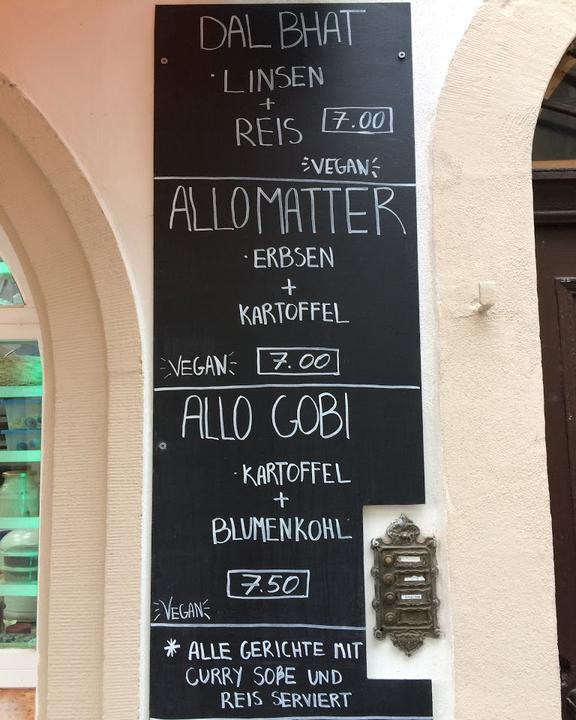 DAL BHAT
· LINSEN
+
REIS 7.00
VEGAN
ALLO MATTER
· ERBSEN
+
KARTOFFEL
VEGAN 7.00
ALLO GOBI
· KARTOFFEL
+
BLUMENKOHL
7.50
VEGAN
* ALLE GERICHTE MIT
CURRY SOßE UND
REIS SERVIERT